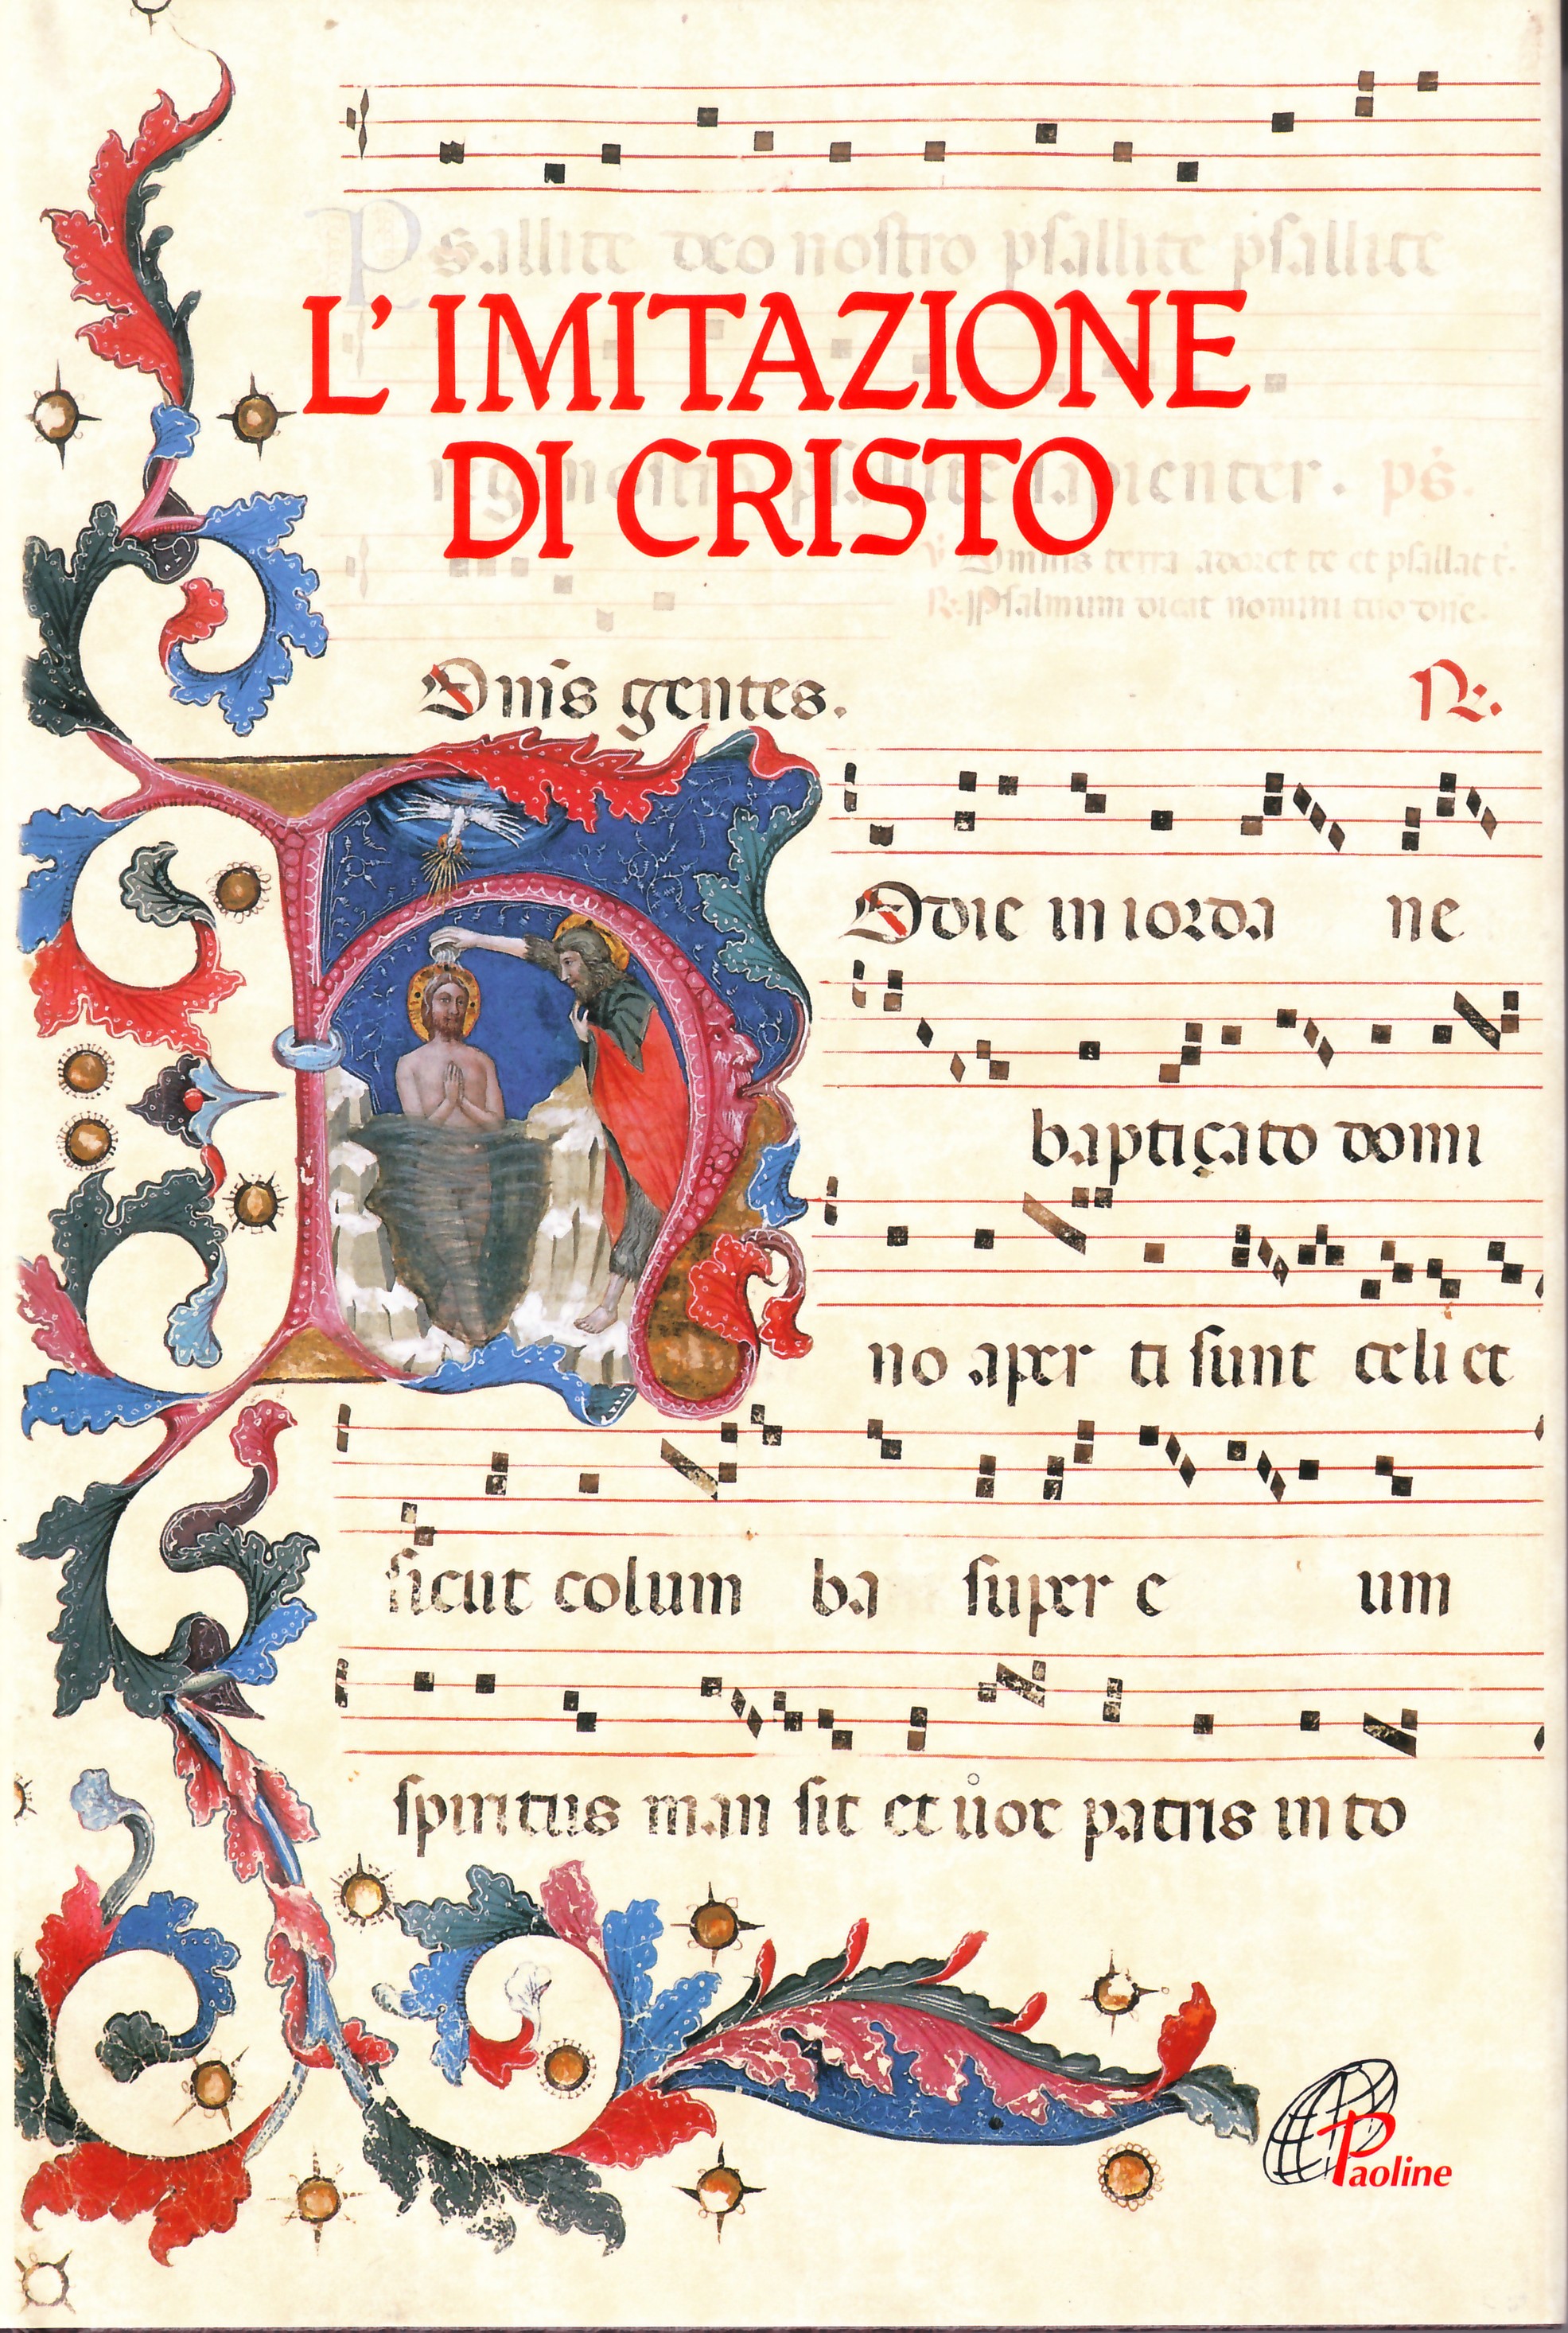 Psallite deo nostro psallite psallite
L' IMITAZIONE
DI CRISTO
regi nostro psallite sapienter. ps.
℣ Omnis terra adoret te et psallat t.
℟. Psalmum dicat nomini tuo dñe.
Om̄s gentes. ℟.
Odie in iorda ne
baptiçato domi
no aper ti sunt celi et
sicut colum ba super e um
spiritus man sit et uox patris in to
Paoline